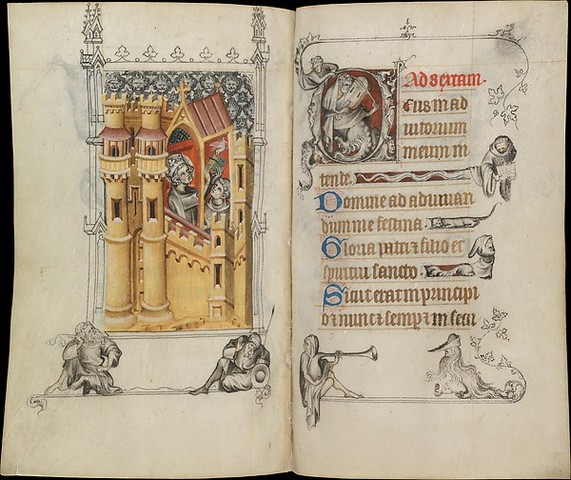 Ad sextam.
Deus in ad
iutorium
meum in
tende.
Domine ad adiuuan
dum me festina
Gloria patri et filio et
spiritui sancto
Sicut erat in principi
o et nunc et semper et in secu